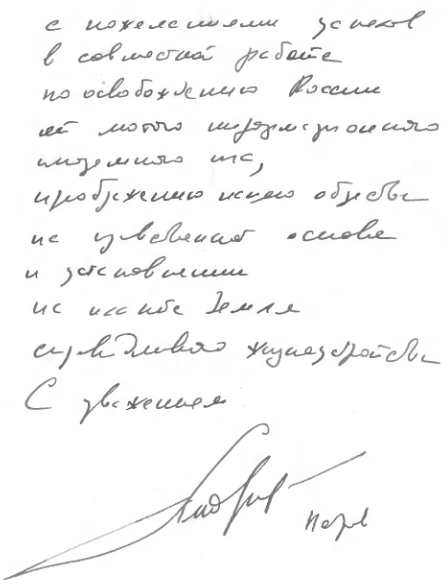 с пожеланиями успехов
в совместной работе
по освобождению России
от информационного
ига,
преображению нашего общества
на нравственной основе
и установлении
на планете Земля
справедливого жизнеустройства
С уважением